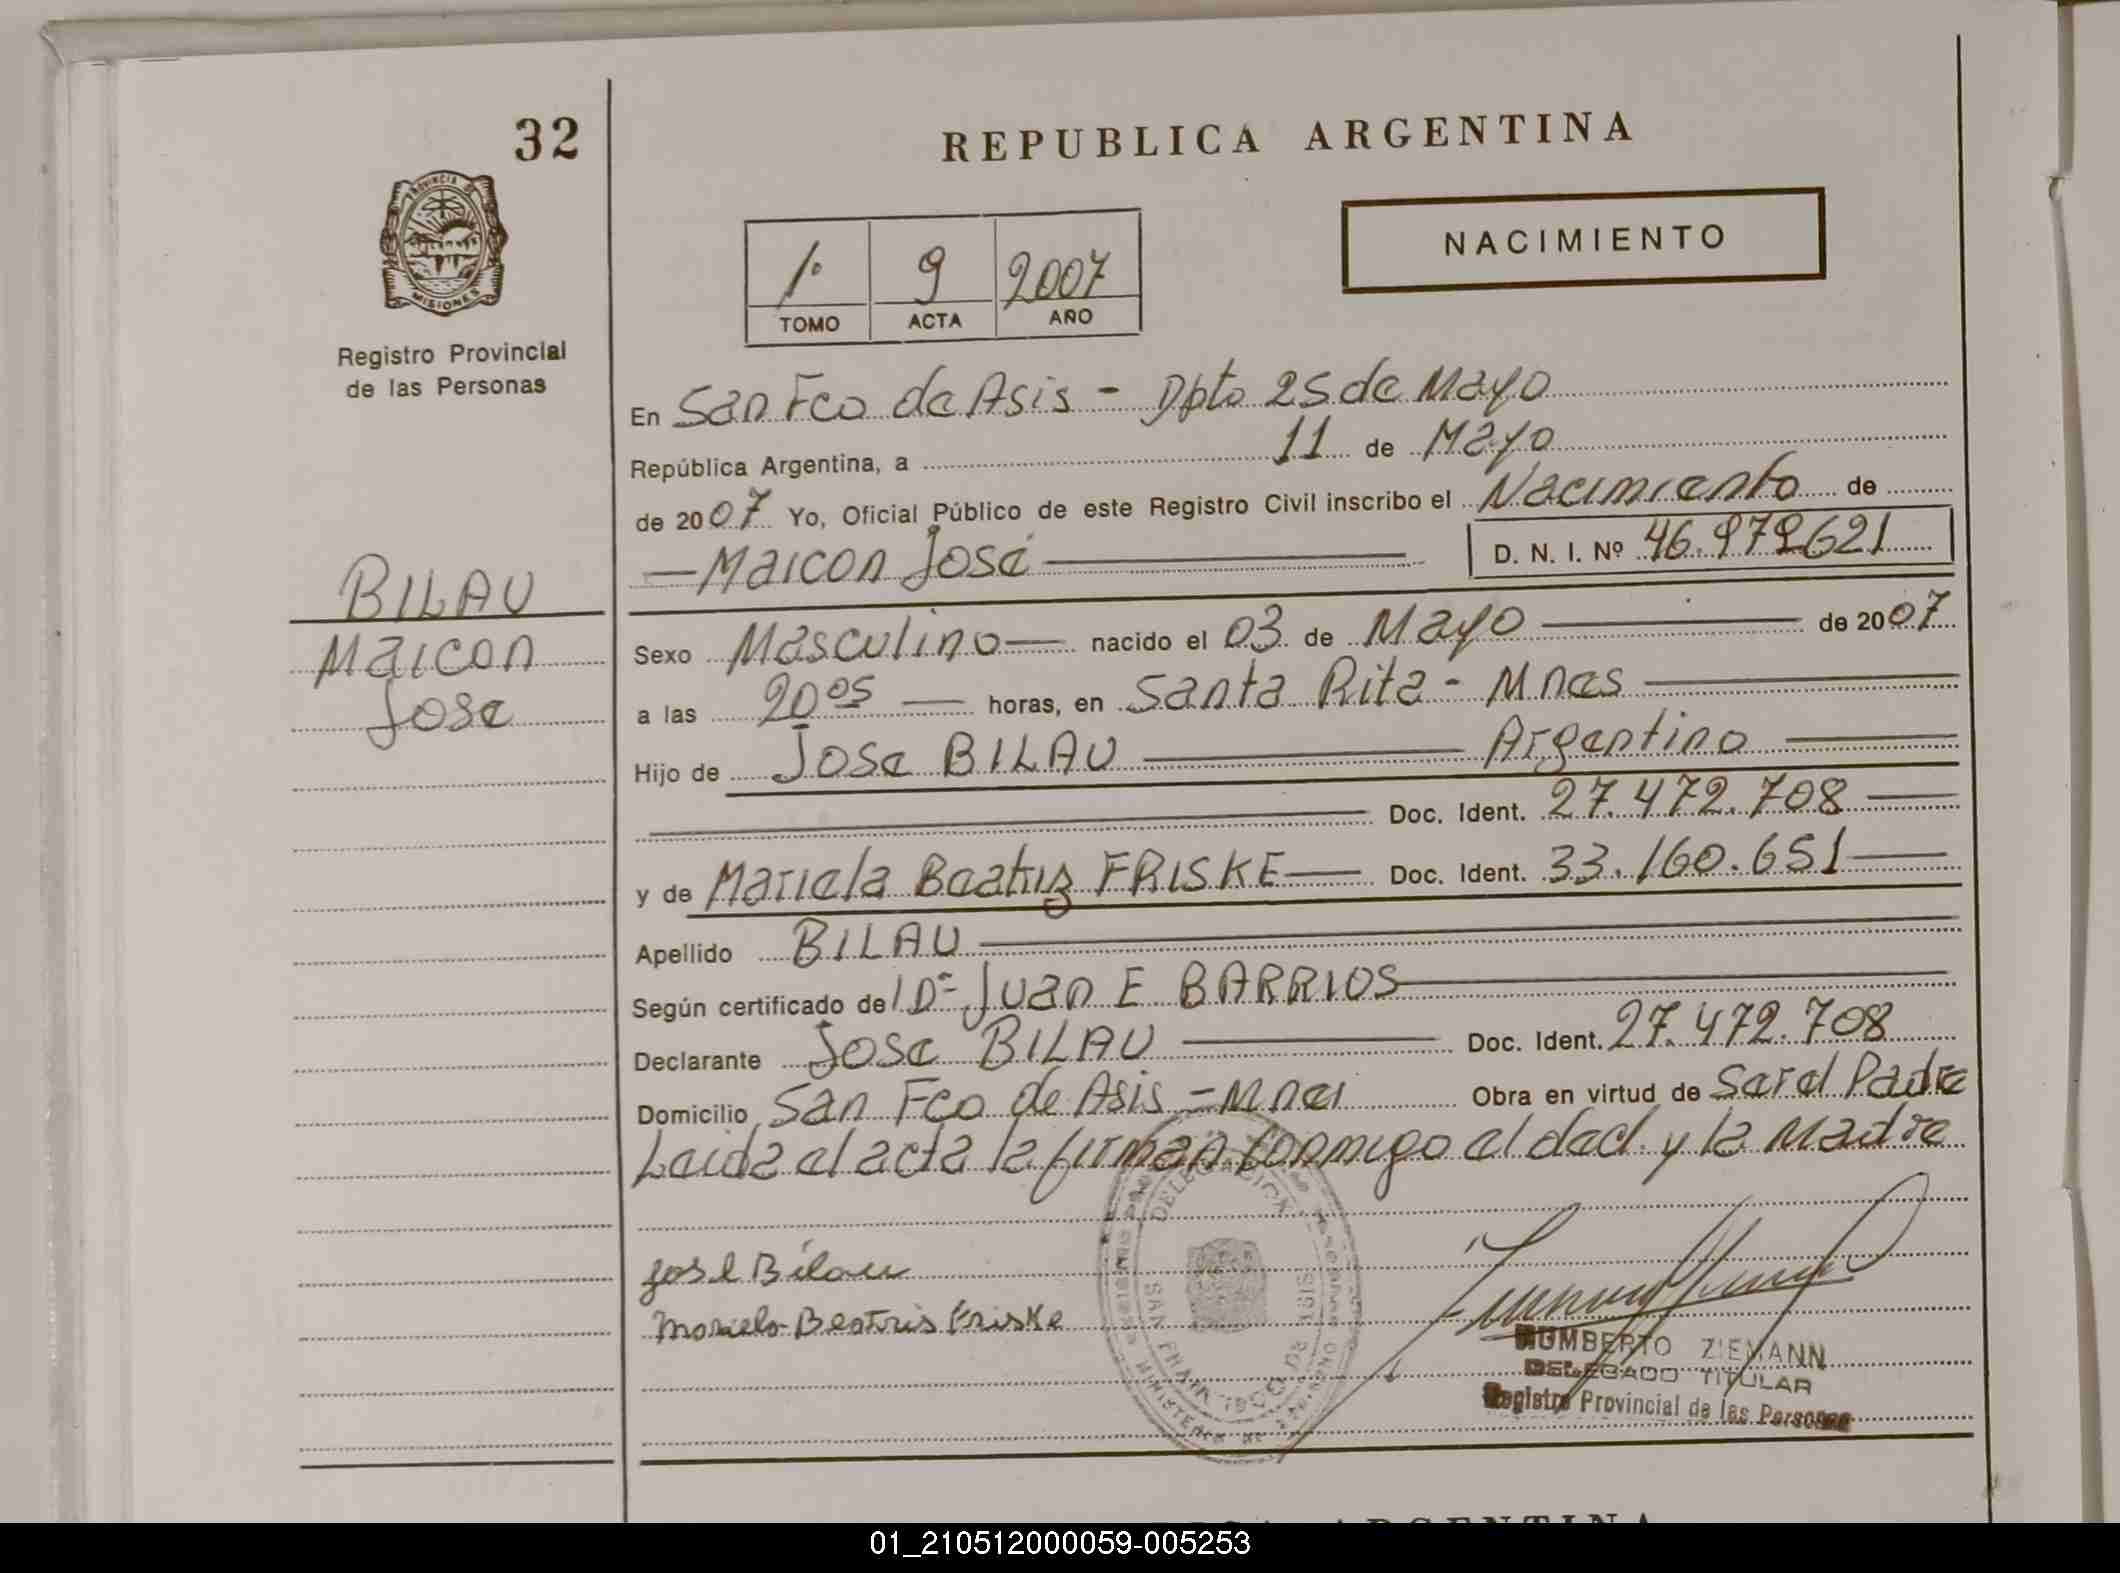 32
REPUBLICA ARGENTINA
PROVINCIA DE
MISIONES
Registro Provincial
de las Personas
NACIMIENTO
1º 9 2007
TOMO ACTA AÑO
En San Fco de Asis - Dpto 25 de Mayo
República Argentina, a 11 de Mayo
de 2007 Yo, Oficial Público de este Registro Civil inscribo el Nacimiento de
— Maicon José — D. N. I. Nº 46.979621
BILAU
Maicon
Jose
Sexo Masculino — nacido el 03 de Mayo — de 2007
a las 20 05 — horas, en Santa Rita - Mnes —
Hijo de Jose BILAU — Argentino —
Doc. Ident. 27.472.708 —
y de Mariela Beatriz FRISKE — Doc. Ident. 33.160.651 —
Apellido BILAU —
Según certificado de Juan E BARRIOS —
Declarante Jose BILAU — Doc. Ident. 27.472.708
Domicilio San Fco de Asis - Mnes Obra en virtud de Ser el Padre
Leida el acta la firman conmigo el decl. y la Madre
Jose Bilau
Mariela Beatris Friske
DELEGACION
SAN FRANCISCO DE ASIS
HUMBERTO ZIEMANN
DELEGADO TITULAR
Registro Provincial de las Personas
01_210512000059-005253